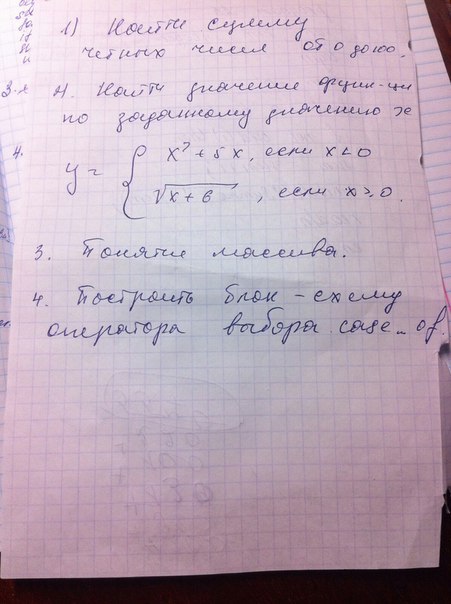 1) Найти сумму
четных чисел от 0 до 100.
2. Найти значение функ-ци
по заданному значению x
y = { x² + 5x, если x < 0
√x + 6, если x ≥ 0.
3. Понятие массива.
4. Построить блок-схему
оператора выбора case... of.